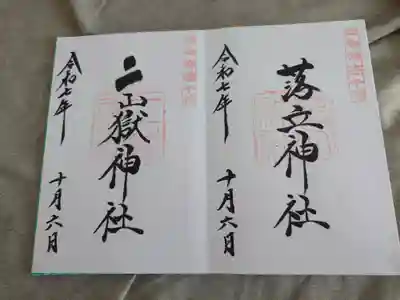 落立神社
令和七年 十月六日
二山嶽神社
令和七年 十月六日